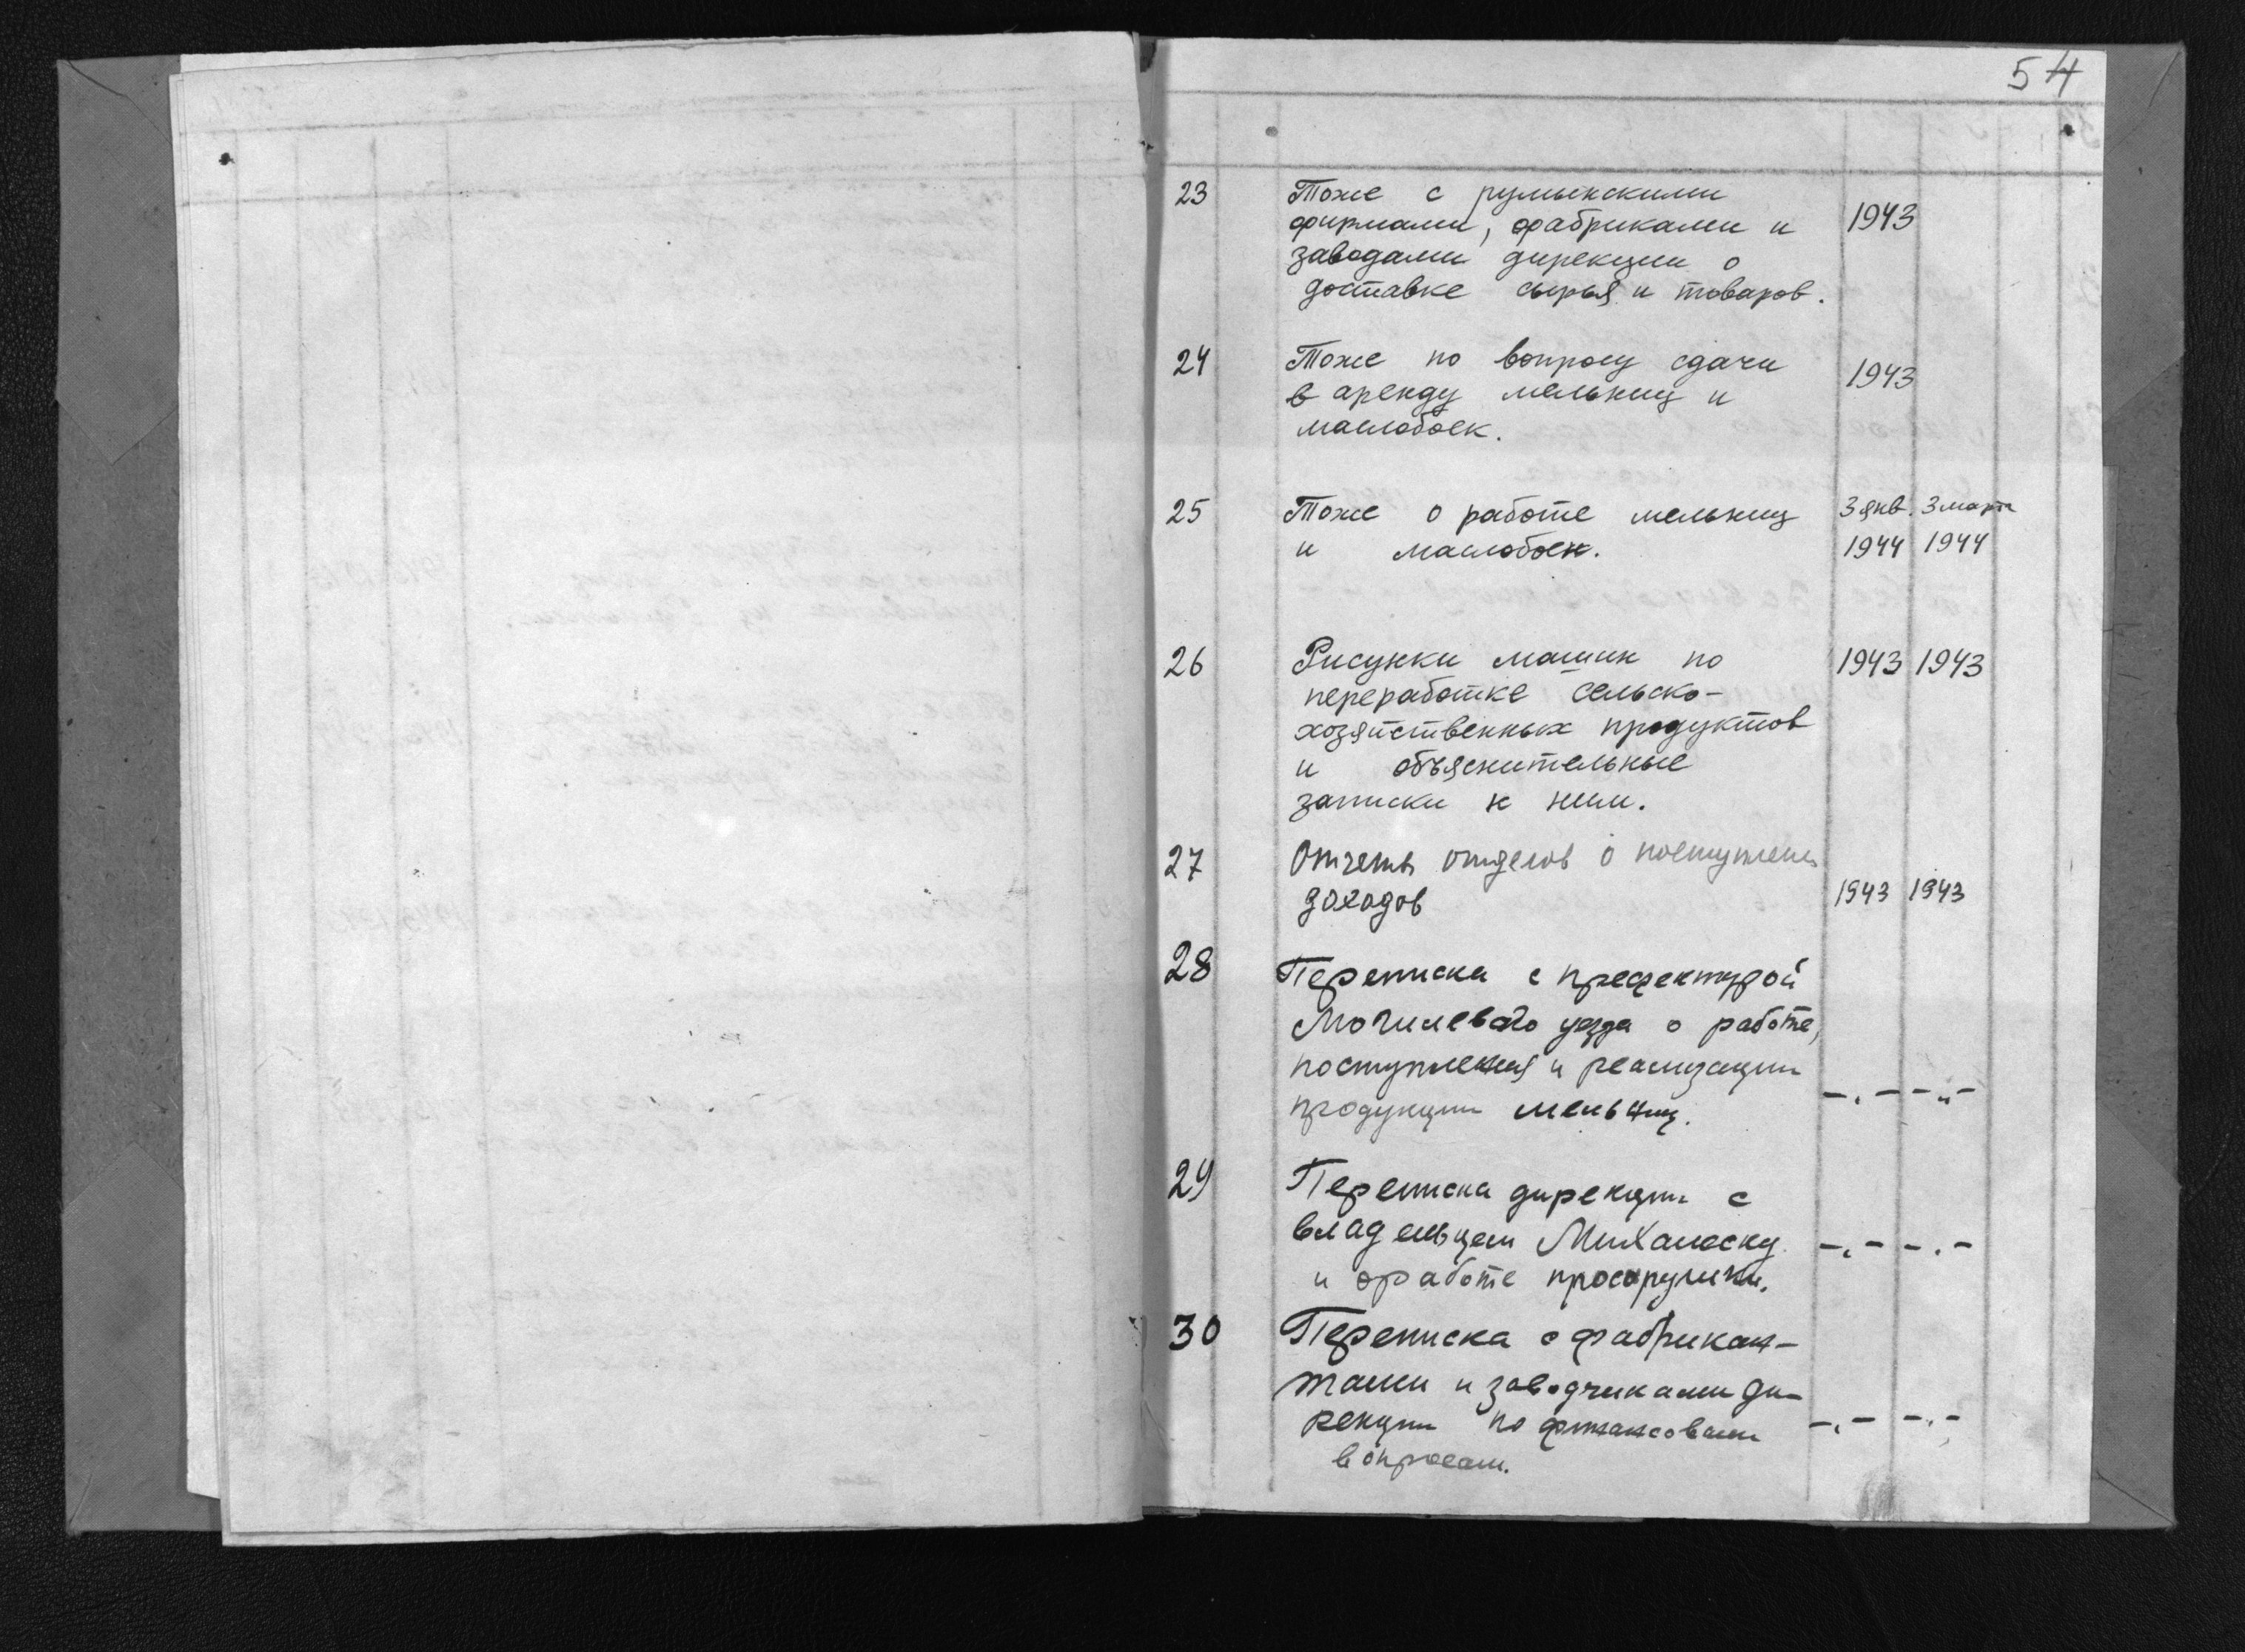 54
23 Тоже с румынскими
фирмами, фабриками и 1943
заводами дирекции о
доставке сырья и товаров.
24 Тоже по вопросу сдачи
в аренду мельниц и 1943
маслобоек.
25 Тоже о работе мельниц 3 янв. 3 марта
и маслобоек. 1944 1944
26 Рисунки машин по 1943 1943
переработке сельско-
хозяйственных продуктов
и объяснительные
записки к ним.
27 Отчеты отделов о поступлении
доходов 1943 1943
28 Переписка с префектурой
Могилевского уезда о работе,
поступления и реализации
продукции мельниц. -„- -„-
29 Переписка дирекции с
владельцем Михалеску -„- -„-
и о работе просорушки.
30 Переписка с фабрикан-
тами и заводчиками ди-
рекции по финансовым -„- -„-
вопросам.